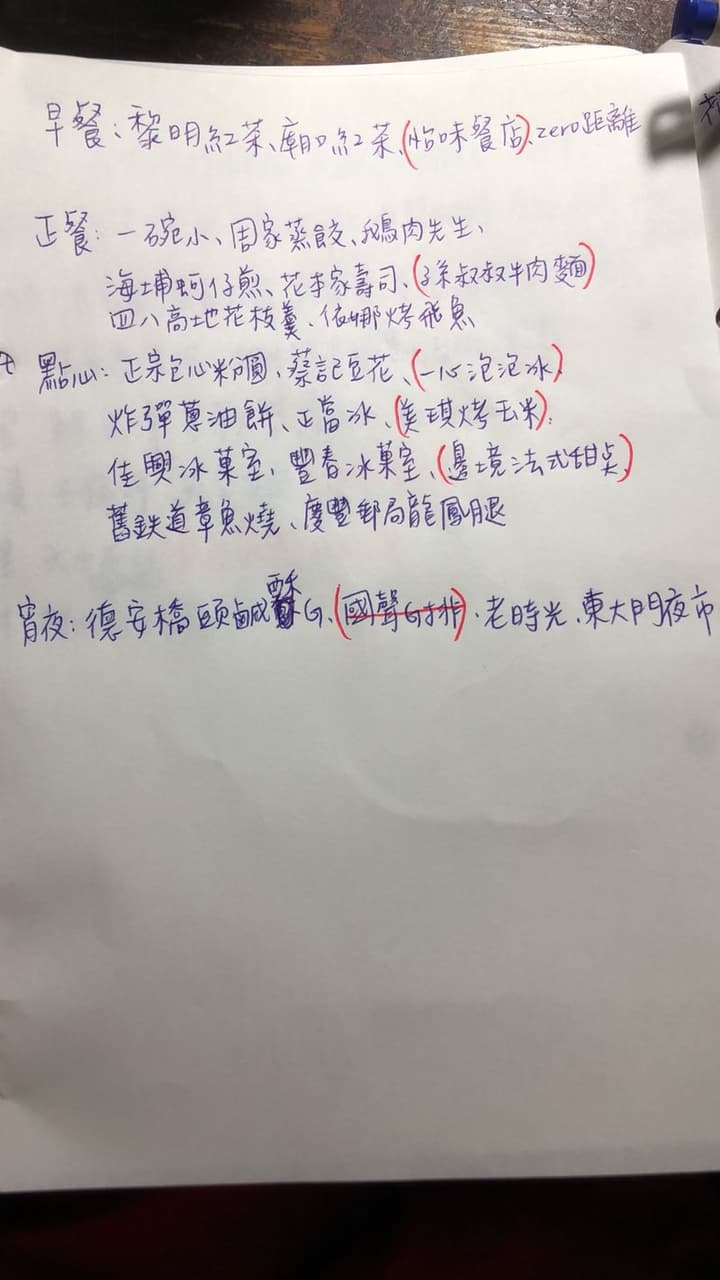 早餐：黎明紅茶、廟口紅茶、(怡味餐店)、zero距離
正餐：一碗小、周家蒸餃、鵝肉先生、
海埔蚵仔煎、花本家壽司、(孫叔叔牛肉麵)
四八高地花枝羹、依娜烤飛魚
點心：正宗包心粉圓、蔡記豆花、(一心泡泡冰)、
炸彈蔥油餅、正當冰、(美琪烤玉米)、
佳興冰菓室、豐春冰菓室、(邊境法式甜點)、
舊鉄道章魚燒、慶豐郵局龍鳳腿
宵夜：德安橋頭鹹酥G、(國聲G排)、老時光、東大門夜市